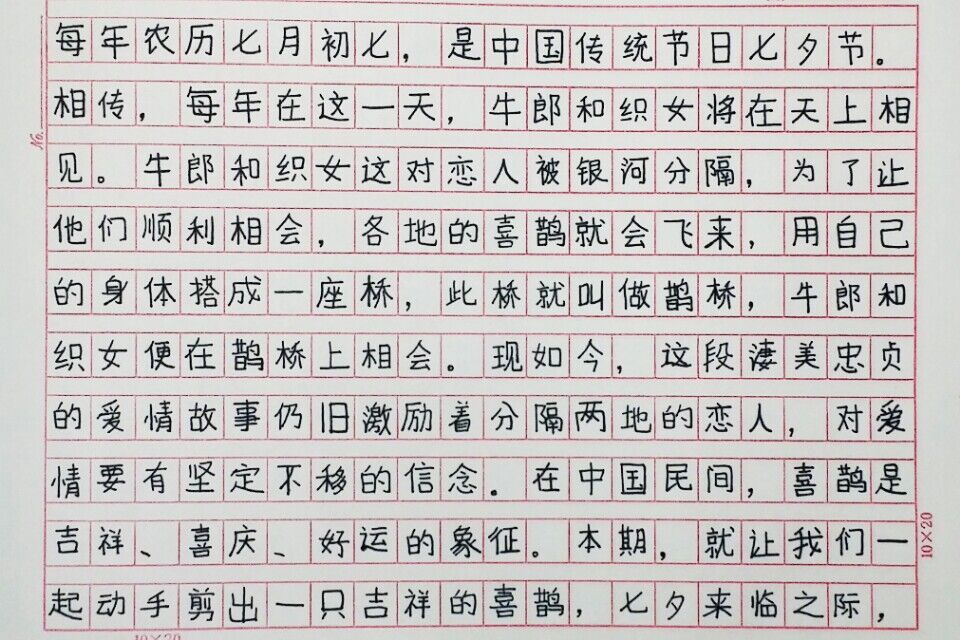 每年农历七月初七，是中国传统节日七夕节。
相传，每年在这一天，牛郎和织女将在天上相
No.
见。牛郎和织女这对恋人被银河分隔，为了让
他们顺利相会，各地的喜鹊就会飞来，用自己
的身体搭成一座桥，此桥就叫做鹊桥，牛郎和
织女便在鹊桥上相会。现如今，这段凄美忠贞
的爱情故事仍旧激励着分隔两地的恋人，对爱
情要有坚定不移的信念。在中国民间，喜鹊是
吉祥、喜庆、好运的象征。本期，就让我们一
10×20
起动手剪出一只吉祥的喜鹊，七夕来临之际，
10×20